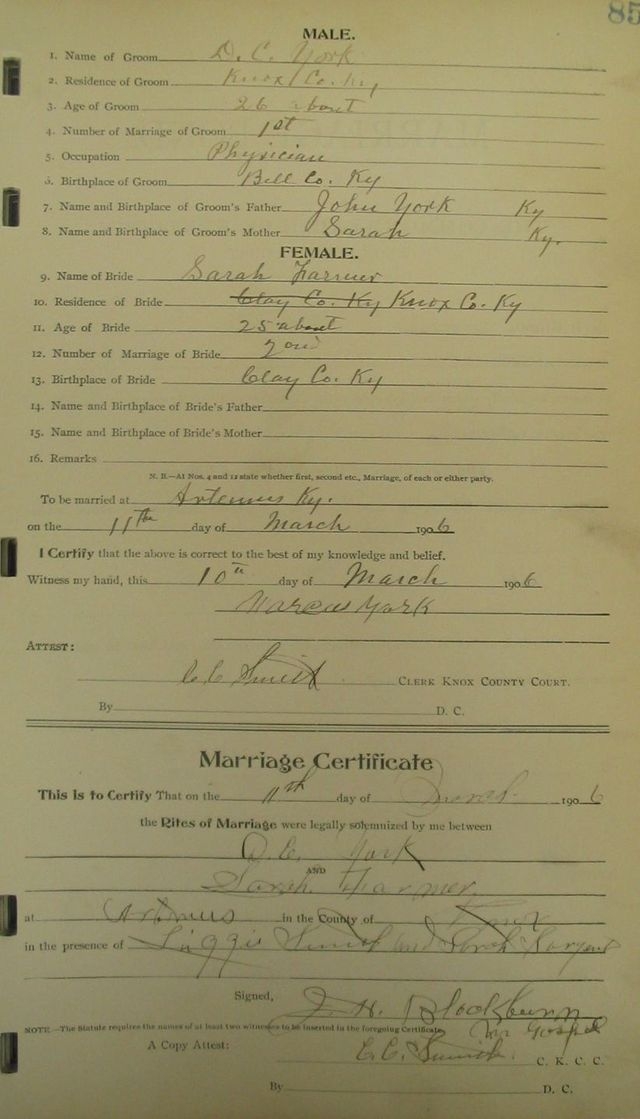 85
MALE.
1. Name of Groom D. C. York
2. Residence of Groom Knox Co. Ky
3. Age of Groom 26 about
4. Number of Marriage of Groom 1st
5. Occupation Physician
6. Birthplace of Groom Bell Co. Ky
7. Name and Birthplace of Groom's Father John York Ky
8. Name and Birthplace of Groom's Mother Sarah Ky.
FEMALE.
9. Name of Bride Sarah Farmer
10. Residence of Bride Clay Co. Ky Knox Co. Ky
11. Age of Bride 25 about
12. Number of Marriage of Bride 2nd
13. Birthplace of Bride Clay Co. Ky
14. Name and Birthplace of Bride's Father
15. Name and Birthplace of Bride's Mother
16. Remarks
N. B.—At Nos. 4 and 12 state whether first, second etc., Marriage, of each or either party.
To be married at Artemus Ky.
on the 11th day of March 1906
I Certify that the above is correct to the best of my knowledge and belief.
Witness my hand, this 10th day of March 1906
Marcus York
ATTEST:
C C Smith CLERK KNOX COUNTY COURT.
By D. C.
Marriage Certificate
This is to Certify That on the 11th day of March 1906
the Rites of Marriage were legally solemnized by me between
D. C. York
AND
Sarah Farmer
at Artemus in the County of Knox
in the presence of Lizzie Smith and Sarah
Signed, J. H. Blackburn
NOTE—The Statute requires the names of at least two witnesses to be inserted in the foregoing Certificate. Mr Gospel
A Copy Attest: C. C. Smith. C. K. C. C.
By D. C.